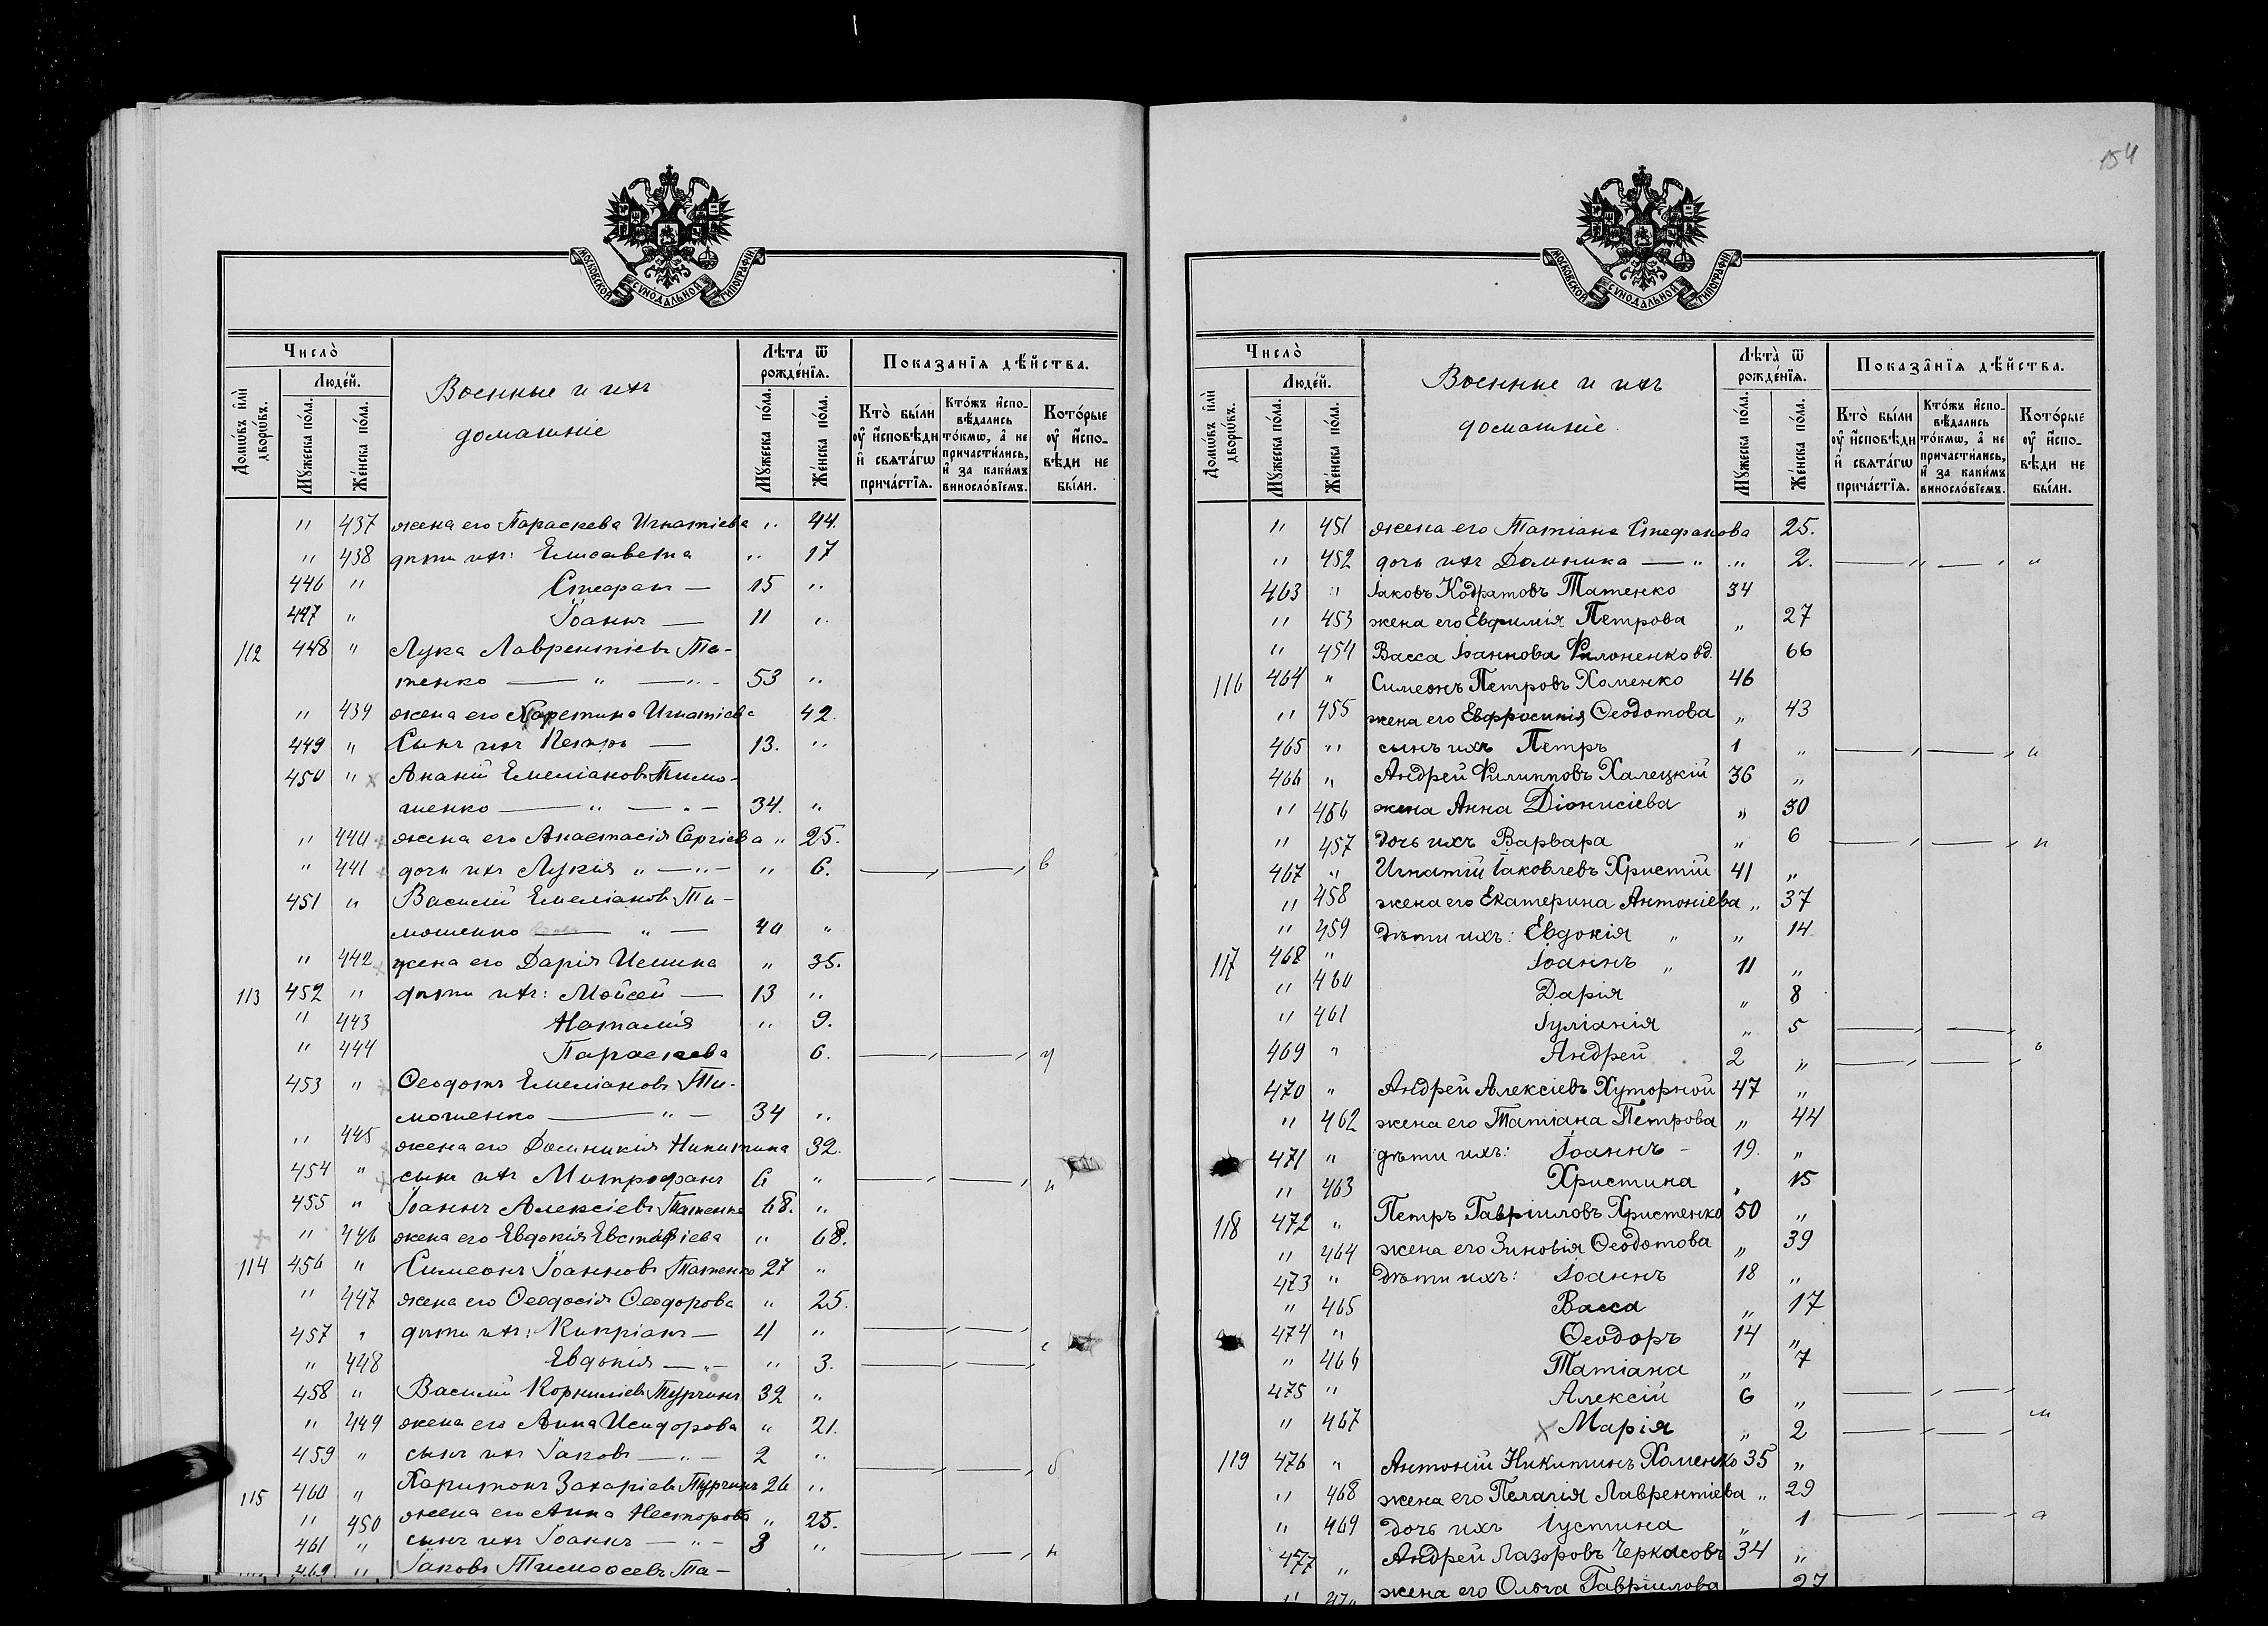 154
МОСКОВСКОЙ СУНОДАЛЬНОЙ ТИПОГРАФІИ
Число̀
Людей.
Домѡвъ и҆лѝ дворѡвъ.
Мꙋжеска по́ла.
Же́нска по́ла.
Военные и ихъ
домашніе
Лѣта ѿ рожде́нїѧ.
Мꙋжеска по́ла.
Же́нска по́ла.
Показанїѧ дѣйства.
Кто̀ бы́ли оу҆ и҆сповѣди и҆ свѧта́гѡ прича́стїѧ.
Кто́жъ и҆спо-вѣдались то́кмѡ, а҆ не причасти́лись, и҆ за каки́мъ виносло́вїемъ.
Кото́рые оу҆ и҆спо-вѣди не бы́ли.
" 437 жена его Параскева Игнатіева " 44.
" 438 дѣти ихъ: Елисавета " 17
446 " Стефанъ — 15 "
447 " Іоаннъ — 11 "
112 448 " Лука Лаврентіевъ Та-
тенко — " — " - 53 "
" 439 жена его Харетина Игнатіева 42.
449 " Сынъ ихъ Петръ — 13. "
450 " х Ананій Емеліановъ Тимо-
шенко — " — " — 34. "
" 440 жена его Анастасія Сергіева " 25.
" 441 дочь ихъ Лукія " — " — " 6. — , — , в
451 " Василій Емеліановъ Ти-
мошенко — " — 40 "
" 442 жена его Дарія Исаина " 35.
113 452 " дѣти ихъ: Моѵсей — 13 "
" 443 Наталія " 9.
" 444 Параскева 6. — , — , у
453 " Ѳеодотъ Емеліановъ Ти-
мошенко — " — 34 "
" 445 жена его Домникія Никитина 32.
454 " сынъ ихъ Митрофанъ 6 " — , — , и
455 " Іоаннъ Алексіевъ Татенко 68. "
" 446 жена его Евдокія Евстафіева " 68.
114 456 " Симеонъ Іоанновъ Татенко 27 "
" 447 жена его Ѳеодосія Ѳеодорова " 25.
457 " дѣти ихъ: Кипріанъ — 4 " — , — ,
" 448 Евдокія — " — " 3. — , — , с
458 " Василій Корниліевъ Турчинъ 32 "
" 449 жена его Анна Исидорова " 21.
459 " сынъ ихъ Іаковъ — " — 2 " — , — , б
115 460 " Харитонъ Захаріевъ Турчинъ 26 "
" 450 жена его Анна Несторова " 25.
461 " сынъ ихъ Іоаннъ — " — 3 " — , — , н
462 " Іаковъ Тимоѳеевъ Та-
МОСКОВСКОЙ СУНОДАЛЬНОЙ ТИПОГРАФІИ
Число̀
Людей.
Домѡвъ и҆лѝ дворѡвъ.
Мꙋжеска по́ла.
Же́нска по́ла.
Военные и ихъ
домашніе.
Лѣта̀ ѿ рожде́нїѧ.
Мꙋжеска по́ла.
Же́нска по́ла.
Показа̂нїѧ дѣйства.
Кто̀ бы́ли оу҆ и҆сповѣди и҆ свѧта́гѡ прича́стїѧ.
Кто́жъ и҆спо-вѣдались то́кмѡ, а҆ не причасти́лись, и҆ за каки́мъ виносло́вїемъ.
Кото́рые оу҆ и҆спо-вѣди не бы́ли.
" 451 жена его Татіана Стефанова 25.
" 452 дочь ихъ Домника — " " 2. — " — , и
463 " Іаковъ Кодратовъ Татенко 34
" 453 жена его Евфимія Петрова " 27
" 454 Васса Іоаннова Филоненко вд. 66
116 464 " Симеонъ Петровъ Хоменко 46
" 455 жена его Евфросинія Ѳеодотова " 43
465 " сынъ ихъ Петръ 1 " — , — , и
466 " Андрей Филипповъ Халецкій 36 "
" 456 жена Анна Діонисіева " 30
" 457 дочь ихъ Варвара " 6 — , — , и
467 " Игнатій Іаковлевъ Христій 41 "
" 458 жена его Екатерина Антоніева " 37
" 459 дѣти ихъ: Евдокія " " 14
117 468 " Іоаннъ " 11 "
" 460 Дарія " 8
" 461 Іуліанія " 5 — , — ,
469 " Андрей 2 " — , — , в
470 " Андрей Алексіевъ Хуторной 47 "
" 462 жена его Татіана Петрова " 44
471 " дѣти ихъ: Іоаннъ - 19. "
" 463 Христина " 15
118 472 " Петръ Гавріиловъ Христенко 50 "
" 464 жена его Зиновія Ѳеодотова " 39
473 " дѣти ихъ: Іоаннъ 18 "
" 465 Васса " 17
474 " Ѳеодоръ 14 "
" 466 Татіана " 7
475 " Алексій 6 " — , — ,
" 467 х Марія " 2 — , — , м
119 476 " Антоній Никитинъ Хоменко 35 "
" 468 жена его Пелагія Лаврентіева " 29
" 469 дочь ихъ Іустина " 1 — , — , а
477 " Андрей Лазоровъ Черкасовъ 34 "
" жена его Ольга Гавріилова 27